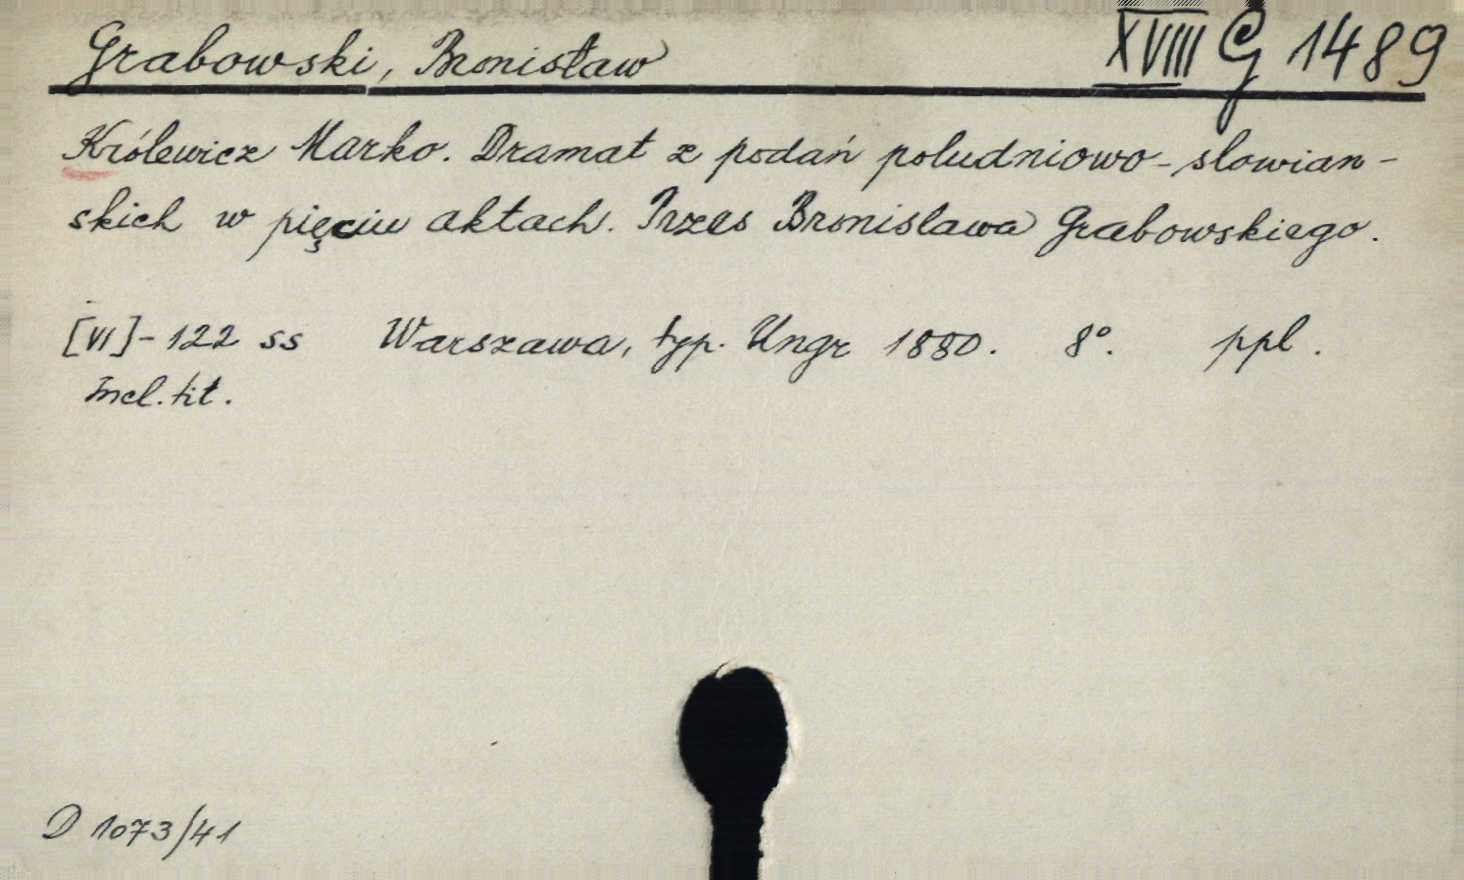 Grabowski, Bronisław XVIII G 1489
Królewicz Marko. Dramat z podań poludniowo-slowian-
skich w pięciu aktach. Przes Bronislawa Grabowskiego.
[VI]-122 ss Warszawa, typ. Ungr 1880. 8°. ppl.
Incl. tit.
D 1073/41